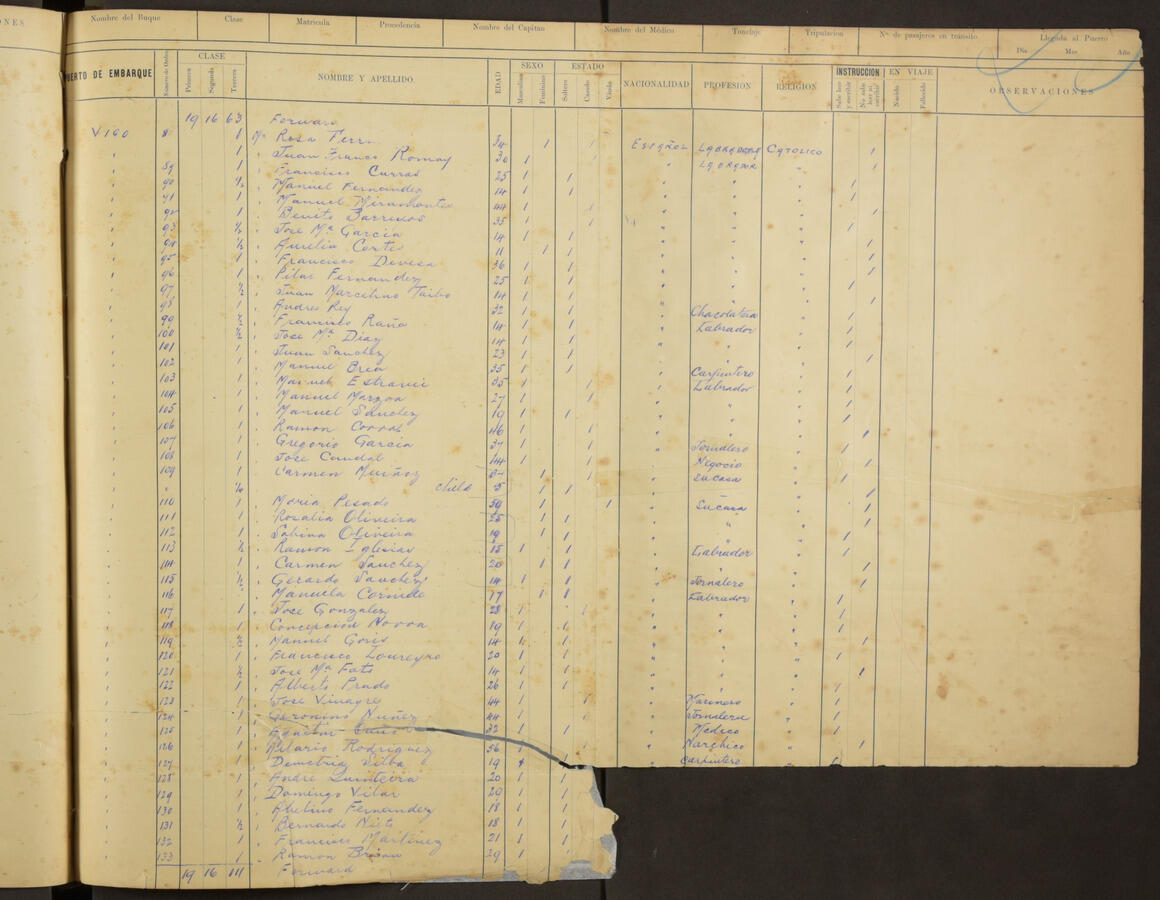 ONES
Nombre del Buque Clase Matricula Procedencia Nombre del Capitan Nombre del Médico Tonelaje Tripulacion Nº de pasajeros en tránsito Llegada al Puerto
Dia Mes Año
PUERTO DE EMBARQUE Número de Orden CLASE Primera Segunda Tercera NOMBRE Y APELLIDO. EDAD SEXO Masculino Femenino ESTADO Soltero Casado Viudo NACIONALIDAD PROFESION RELIGION INSTRUCCION Sabe leer y escribir No sabe leer ni escribir EN VIAJE Nacido Fallecido OBSERVACIONES
19 16 63 Forward
VIGO 8 1 Mª Rosa Ferr 34 1 1 ESPAÑOL LABRADORA CATOLICO 1
" 1 Juan Franco Romay 30 1 1 " LABRADOR " 1
" 89 1 " Francisco Curras 25 1 1 " " "
" 90 ½ " Manuel Fernandez 14 1 1 " " " 1
" 91 1 " Manuel Miramontes 44 1 1 " " " 1
" 92 1 " Benito Barreiros 35 1 1 " " " 1
" 93 ½ " Jose Mª Garcia 14 1 1 " " " 1
" 94 ½ " Aurelia Corte 11 1 1 " " " 1
" 95 1 " Francisco Devesa 36 1 1 " " " 1
" 96 1 " Pilar Fernandez 25 1 1 " " " 1
" 97 ½ " Juan Marcelino Taibo 14 1 1 " " " 1
" 98 1 " Andres Rey 32 1 1 " Chacolatera " 1
" 99 ½ " Francisco Raña 14 1 1 " Labrador " 1
" 100 ½ " Jose Mª Diaz 14 1 1 " " " 1
" 101 1 " Juan Sanchez 23 1 1 " " " 1
" 102 1 " Manuel Brea 35 1 1 " Carpintero " 1
" 103 1 " Manuel Estravii 35 1 1 " Labrador " 1
" 104 1 " Manuel Marzoa 27 1 1 " " " 1
" 105 1 " Manuel Sanchez 19 1 1 " " " 1
" 106 1 " Ramon Corral 46 1 1 " " " 1
" 107 1 " Gregorio Garcia 37 1 1 " Jornalero " 1
" 108 1 " Jose Caudal 44 1 1 " Negocio " 1
" 109 1 " Carmen Muñoz 1 1 " Su casa " 1
" " child 5 1 1
" 110 1 " Maria Pesado 50 1 1 " Su casa " 1
" 111 1 " Rosalia Oliveira 25 1 1 " " " 1
" 112 1 " Sabina Oliveira 19 1 1 " " " 1
" 113 ½ " Ramon Iglesias 15 1 1 " Labrador " 1
" 114 1 " Carmen Sanchez 20 1 1 " " " 1
" 115 ½ " Gerardo Sanchez 14 1 1 " Jornalero " 1
" 116 1 " Manuela Cornide 17 1 1 " Labrador " 1
" 117 1 " Jose Gonzalez 28 1 1 " " " 1
" 118 1 " Concepcion Novoa 19 1 1 " " " 1
" 119 ½ " Manuel Goris 14 1 1 " " " 1
" 120 1 " Francisco Loureyro 20 1 1 " " " 1
" 121 ½ " Jose Mª Fato 14 1 1 " " " 1
" 122 1 " Alberto Prado 26 1 1 " " " 1
" 123 1 " Jose Vinagre 44 1 1 " Marinero " 1
" 124 1 " Geronimo Nuñez 44 1 1 " Jornalero " 1
" 125 1 " Agustin 32 1 1 " Medico " 1
" 126 1 " Hilario Rodriguez 56 1 1 " " 1
" 127 1 " Demetria Silba 19 1 1 " Carpintero " 1
" 128 1 " Andre Quinteira 20 1 1
" 129 1 " Domingo Vilar 20 1 1
" 130 1 " Abelino Fernandez 18 1 1
" 131 ½ " Bernardo Nieto 18 1 1
" 132 1 " Francisco Martinez 21 1 1
" 133 1 " Ramon Brian 29 1 1
19 16 111 Forward